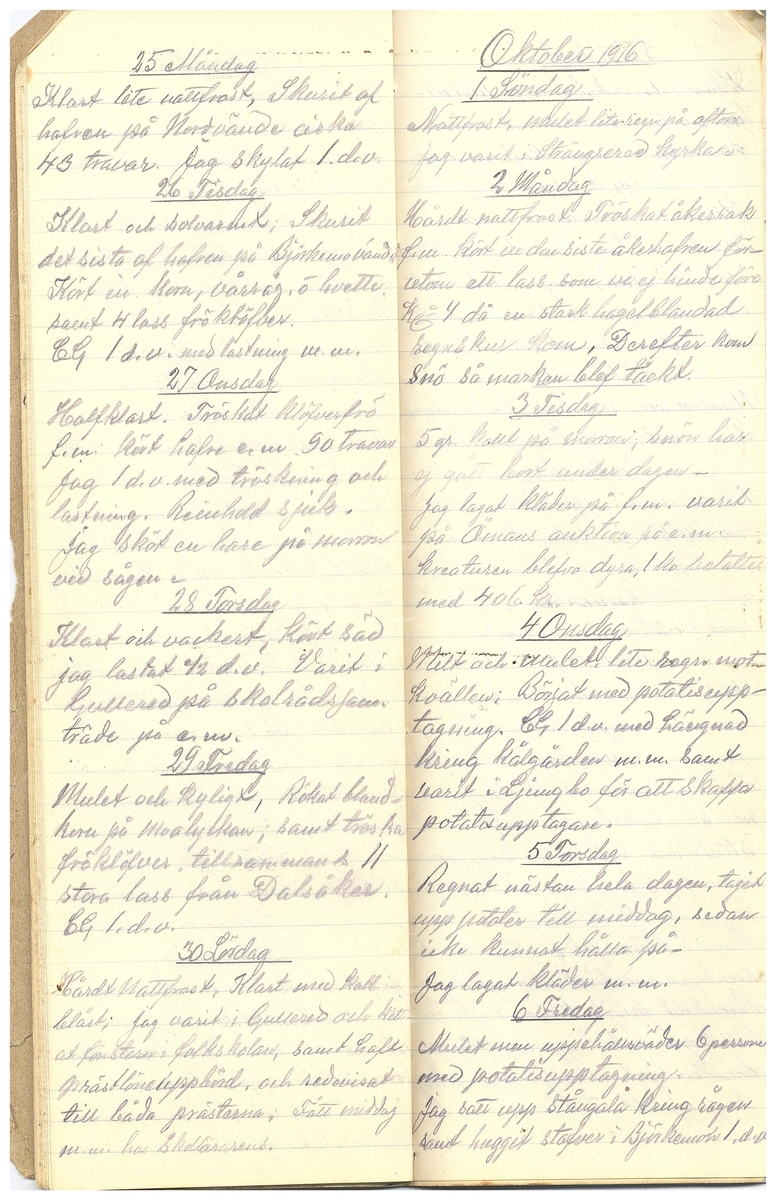 25 Måndag
Klart lite nattfrost, Skurit af
hafren på Nordvände cirka
43 travar. Jag skylat 1.d.v.
26 Tisdag
Klart och solvarmt; Skurit
det sista af hafren på Björkemovände
Kört in korn, vårråg, o hvette
samt 4 lass fröklöfver.
CG 1 d.v. med lastning m.m.
27 Onsdag
Halfklart. Tröskat klöfverfrö
f.m. kört hafre e.m 90 travar
Jag 1 d.v. med tröskning och
lastning. Reinhold sjuk.
Jag sköt en hare på morron
vid sågen.
28 Torsdag
Klart och vackert, Kört säd
jag lastat 1/2 d.v. Varit i
Gullered på skolrådsjam-
träde på e.m.
29 Fredag
Mulet och kyligt, Rökat bland-
korn på Moalyckan; samt tröska
fröklöfver, tillsammans 11
stora lass från Dalsåker.
CG 1.d.v.
30 Lördag
Hårdt Nattfrost, Klart med kall
blåst; jag varit i Gullered och kitt-
at fönstern i folkskolan, samt haft
prästlöneuppbörd, och redovisat
till båda prästerna; Fått middag
m.m. hos Skollärarens.
Oktober 1916
1 Söndag
Nattfrost, mulet lite regn på aftonen
jag varit i Strängsered kyrka
2 Måndag
Hårdt nattfrost. Tröskat åkerrak
f.m. kört in den sista åkerhafren för-
utom ett lass som vi ej hinde före
Kl 4 då en stark hagelblandad
regnskur kom, Derefter kom
snö så marken blef täckt.
3 Tisdag
5 gr. kallt på morron; snön har
ej gått bort under dagen
Jag lagat kläder på f.m. varit
på Ömans auktion på e.m.
kreaturen blefvo dyra, 1 ko betaltes
med 406 kr.
4 Onsdag
Milt och mulet, lite regn mot
kvällen; Börjat med potatisupp-
tagning. CG 1 d.v. med hängnad
kring kålgården m.m. samt
varit i Ljungbo för att skaffa
potatisupptagare.
5 Torsdag
Regnat nästan hela dagen, tagit
upp potater till middag, sedan
icke kunnat hålla på
Jag lagat kläder m.m.
6 Fredag
Mulet men uppehållsväder 6 personer
med potatisupptagning.
Jag satt upp stångala kring rågen
samt huggit stafver i Björkemon 1.d.v